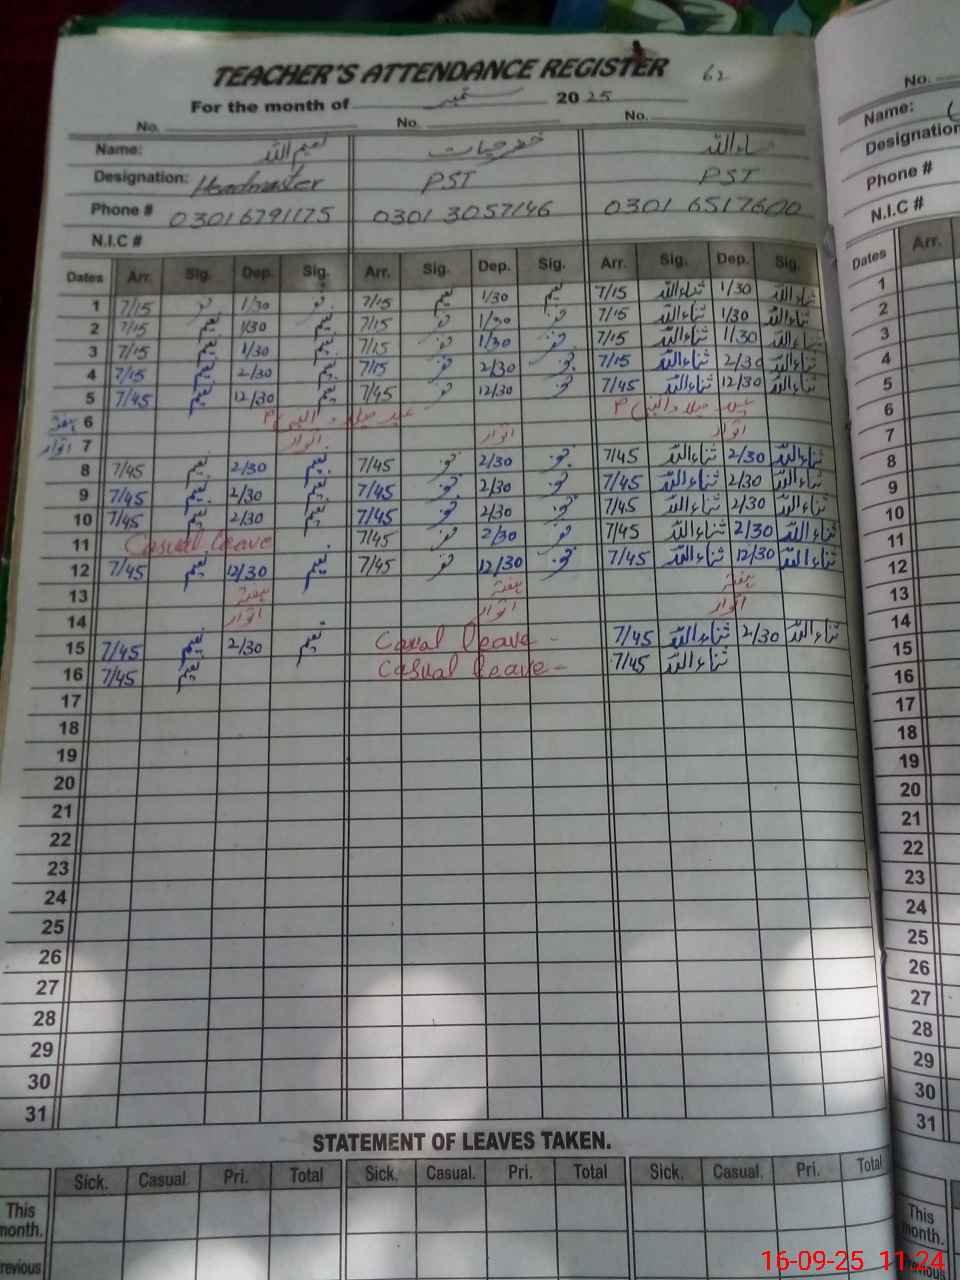 TEACHER'S ATTENDANCE REGISTER 62
For the month of ستمبر 2025
No. No. No.
Name: نعیم اللہ خضر حیات ثناء اللہ
Designation: Headmaster PST PST
Phone # 03016791175 0301 3057146 0301 6517600
N.I.C #
Dates Arr. Sig. Dep. Sig. Arr. Sig. Dep. Sig. Arr. Sig. Dep. Sig.
1 7/15 1/30 7/15 نعیم 1/30 نعیم 7/15 ثناءاللہ 1/30 ثناءاللہ
2 7/15 نعیم 1/30 نعیم 7/15 1/30 7/15 ثناءاللہ 1/30 ثناءاللہ
3 7/15 نعیم 1/30 نعیم 7/15 1/30 7/15 ثناءاللہ 1/30 ثناءاللہ
4 7/15 نعیم 2/30 نعیم 7/15 2/30 7/15 ثناءاللہ 2/30 ثناءاللہ
5 7/45 نعیم 12/30 نعیم 7/45 12/30 7/45 ثناءاللہ 12/30 ثناءاللہ
ہفتہ 6 عید میلاد النبی عید میلاد النبی
اتوار 7 اتوار اتوار اتوار
8 7/45 نعیم 2/30 نعیم 7/45 2/30 7/45 ثناءاللہ 2/30 ثناءاللہ
9 7/45 نعیم 2/30 نعیم 7/45 2/30 7/45 ثناءاللہ 2/30 ثناءاللہ
10 7/45 نعیم 2/30 نعیم 7/45 2/30 7/45 ثناءاللہ 2/30 ثناءاللہ
11 Casual leave 7/45 2/30 7/45 ثناءاللہ 2/30 ثناءاللہ
12 7/45 نعیم 12/30 نعیم 7/45 12/30 7/45 ثناءاللہ 12/30 ثناءاللہ
13 ہفتہ ہفتہ ہفتہ
14 اتوار اتوار اتوار
15 7/45 نعیم 2/30 نعیم Casual leave - 7/45 ثناءاللہ 2/30 ثناءاللہ
16 7/45 نعیم Casual leave - 7/45 ثناءاللہ
17
18
19
20
21
22
23
24
25
26
27
28
29
30
31
STATEMENT OF LEAVES TAKEN.
Sick. Casual. Pri. Total Sick. Casual. Pri. Total Sick. Casual. Pri. Total
This month.
Previous
No.
Name:
Designation
Phone #
N.I.C #
Dates Arr.
1
2
3
4
5
6
7
8
9
10
11
12
13
14
15
16
17
18
19
20
21
22
23
24
25
26
27
28
29
30
31
This month.
Previous
16-09-25 11:24